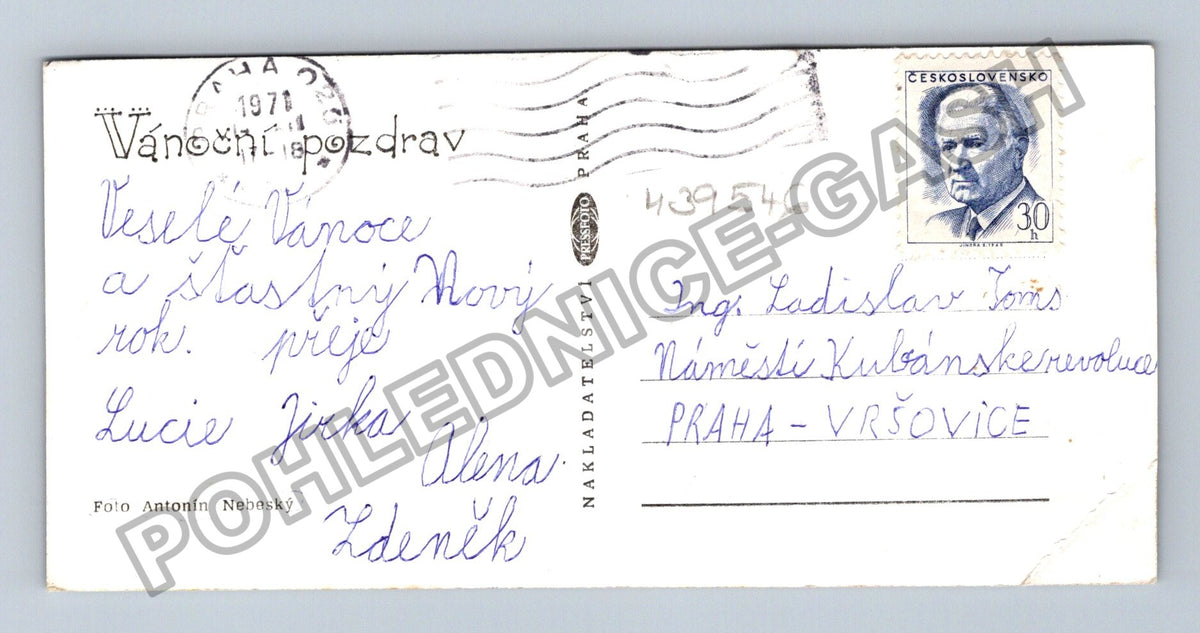 PRAHA 026
1971
18
Vánoční pozdrav
Veselé Vánoce
a šťastný Nový
rok. přeje
Lucie Jirka
Alena
Zdeněk
Foto Antonín Nebeský
NAKLADATELSTVÍ PRESSFOTO PRAHA
439546
ČESKOSLOVENSKO
30
h
Ing. Ladislav Toms
Náměstí Kubánske revoluce
PRAHA – VRŠOVICE
POHLEDNICE-GASH